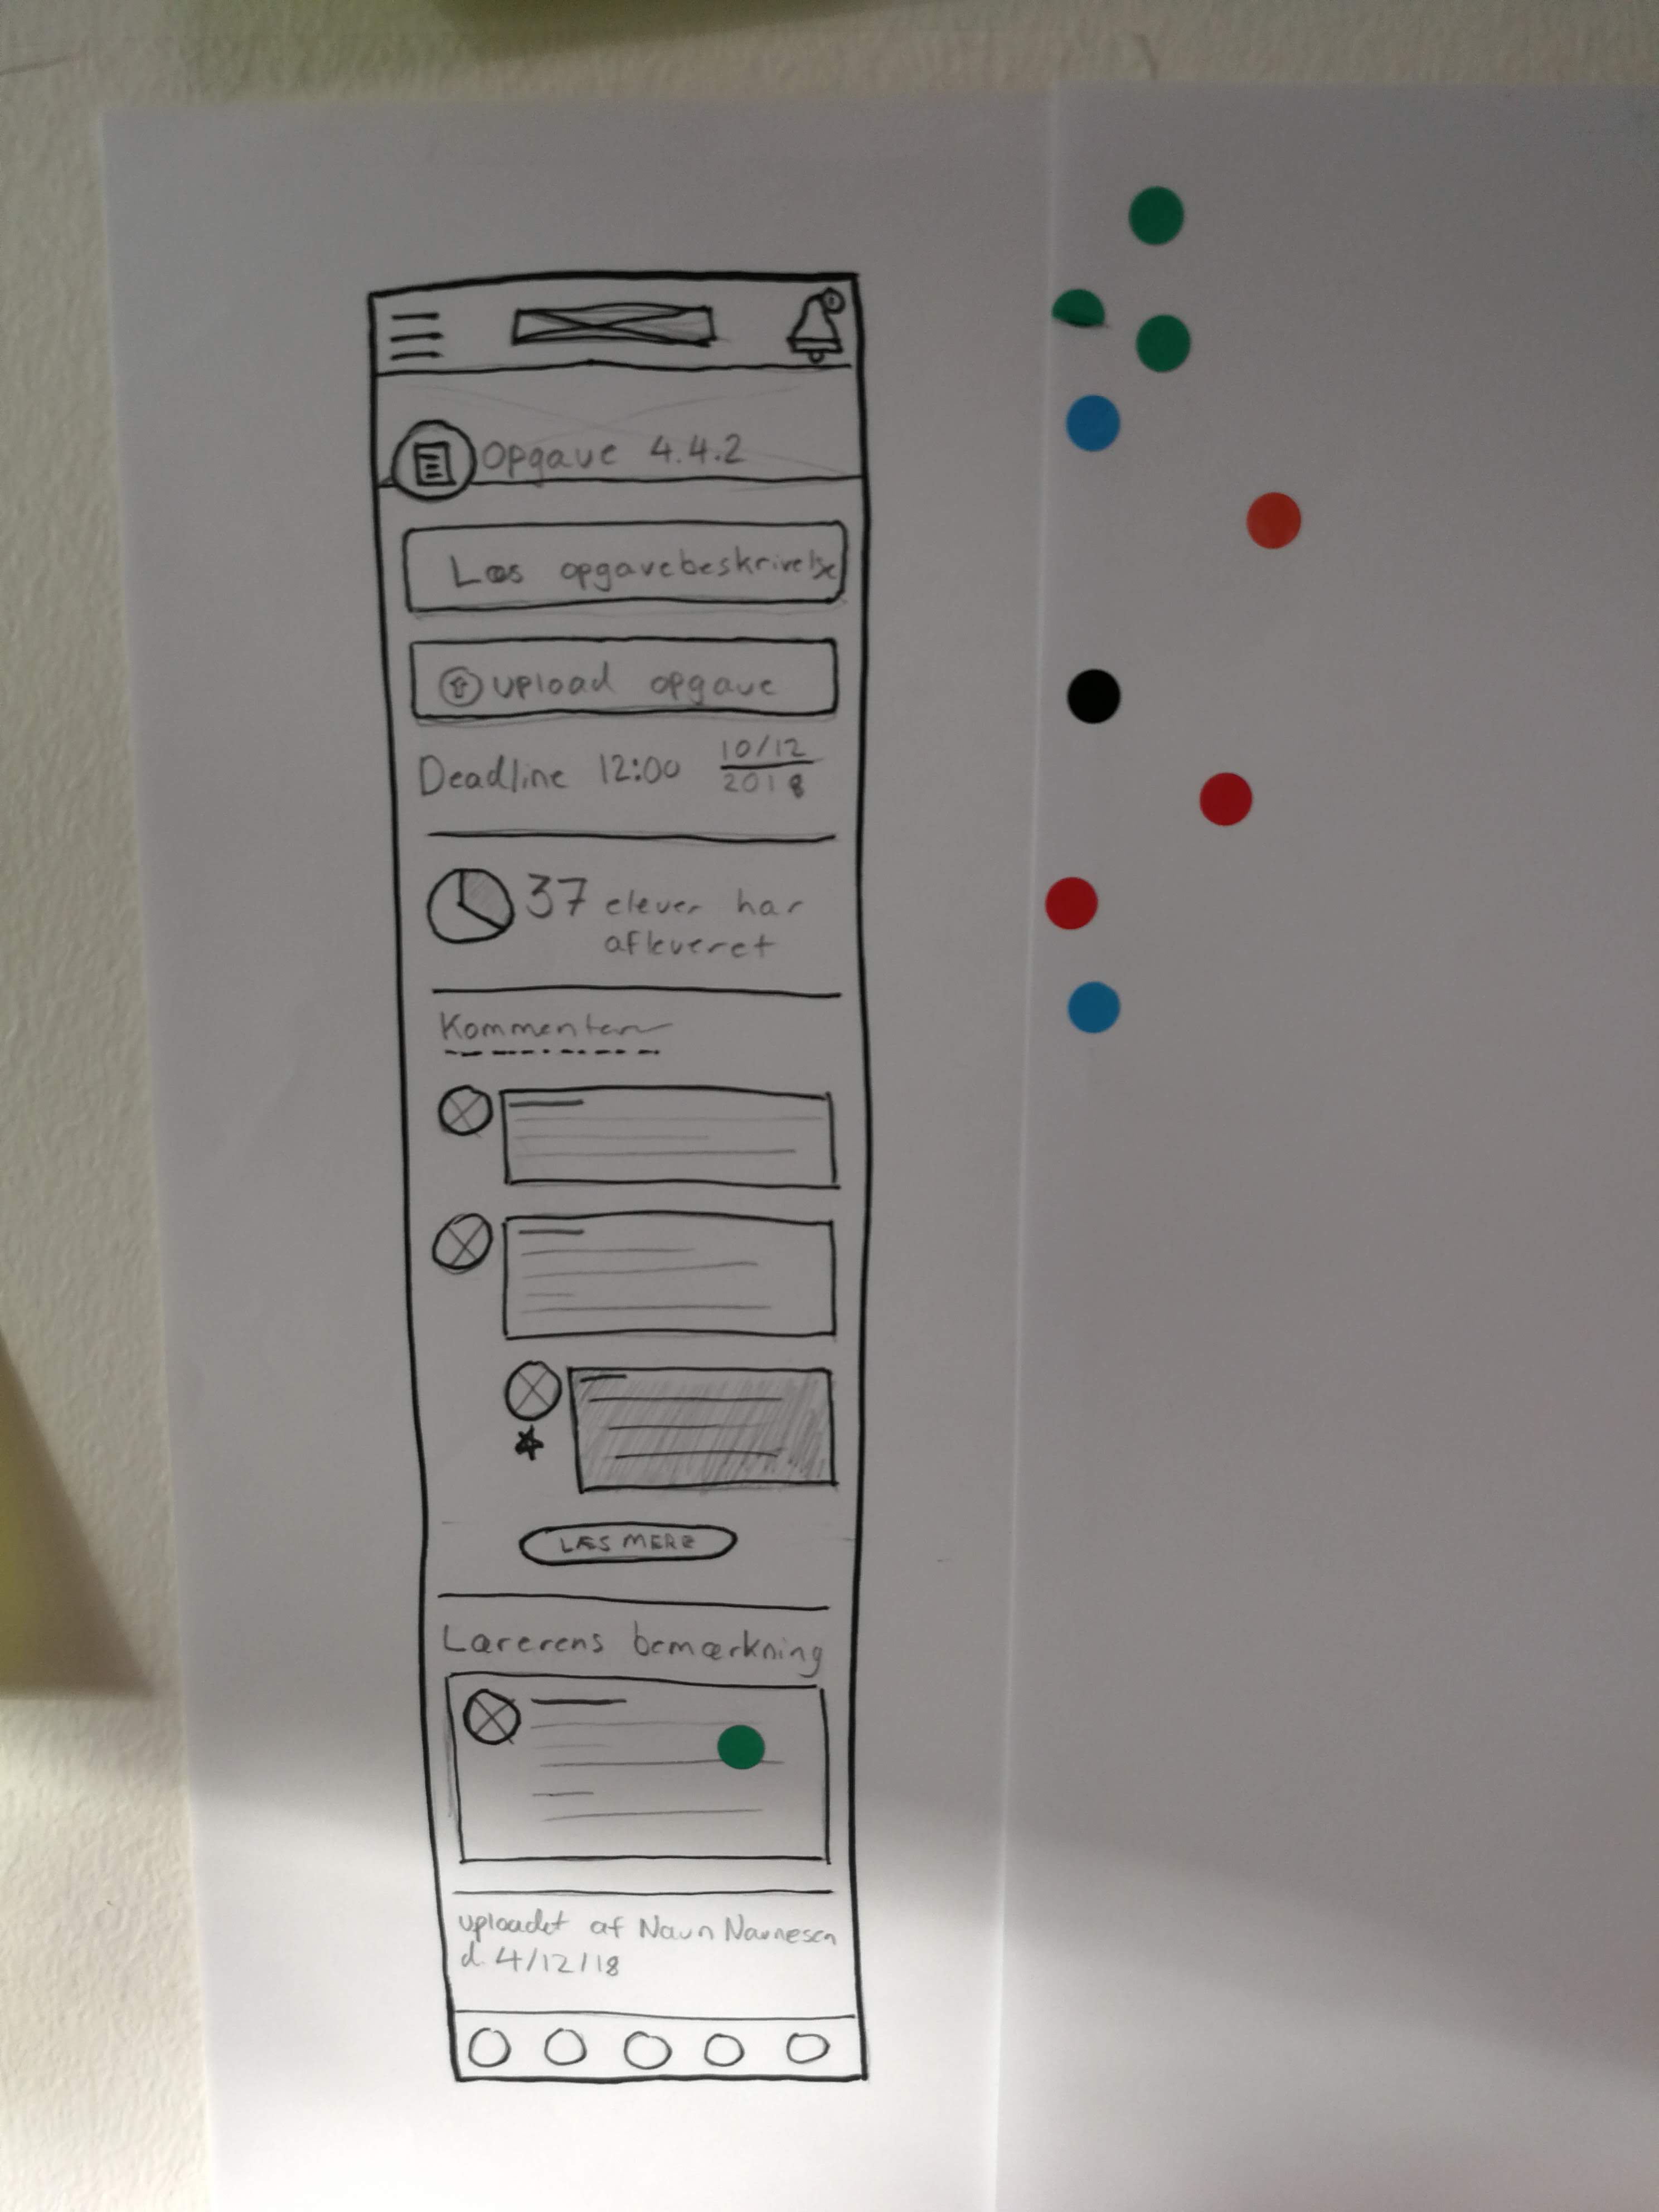 Opgave 4.4.2
Læs opgavebeskrivelse
upload opgave
Deadline 12:00 10/12
2018
37 elever har
afleveret
Kommentar
LÆS MERE
Lærerens bemærkning
uploadet af Navn Navnesen
d. 4/12/18